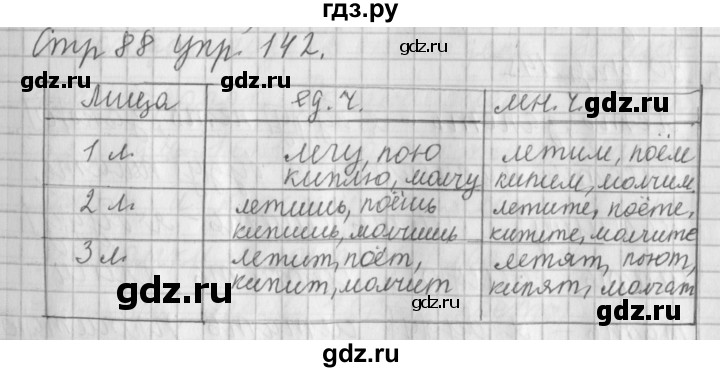 гдз.ру
Стр 88 упр. 142.
gdz.ru gdz.ru
Лица ед. ч. мн. ч. gdz.ru
1 л. лечу, пою летим, поём
киплю, молчу кипим, молчим
2 л. летишь, поёшь летите, поёте,
кипишь, молчишь кипите, молчите
3 л. летит, поёт, летят, поют,
кипит, молчит кипят, молчат
gdz.ru gdz.ru gdz.ru
gdz.ru